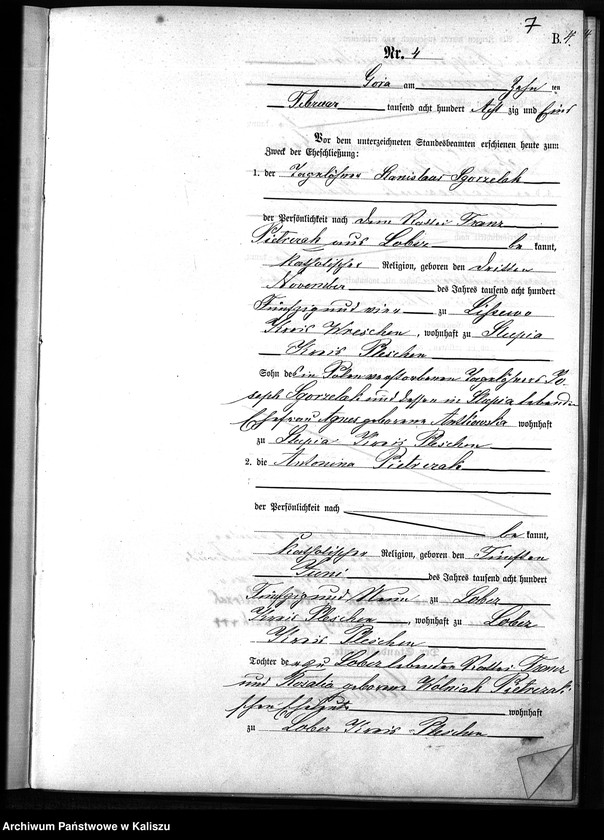 7
B. 4.
Nr. 4
Gora am Zehn ten
Februar tausend acht hundert Acht zig und Eins
Vor dem unterzeichneten Standesbeamten erschienen heute zum
Zweck der Eheschließung:
1. der Tagelöhner Stanislaus Sgorzelak
der Persönlichkeit nach dem Franz
Pietrzak aus Lober be kannt,
katholischer Religion, geboren den dritten
November des Jahres tausend acht hundert
Fünfzig und vier zu Lissewo
Kreis Wreschen, wohnhaft zu Slupia
Kreis Pleschen
Sohn des in Polen verstorbenen Tagelöhners Jo-
seph Sgorzelak und dessen in Slupia lebenden
Ehefrau Agnes geborene wohnhaft
zu Slupia Kreis Pleschen
2. die Antonina Pietrzak
der Persönlichkeit nach
be kannt,
katholischer Religion, geboren den Fünften
Juni des Jahres tausend acht hundert
Fünfzig und Neun zu Lober
Kreis Pleschen, wohnhaft zu Lober
Kreis Pleschen
Tochter der zu Lober lebenden Franz
und Rosalia geborene Wolniak Pietrzak-
schen Eheleute wohnhaft
zu Lober Kreis Pleschen
Archiwum Państwowe w Kaliszu